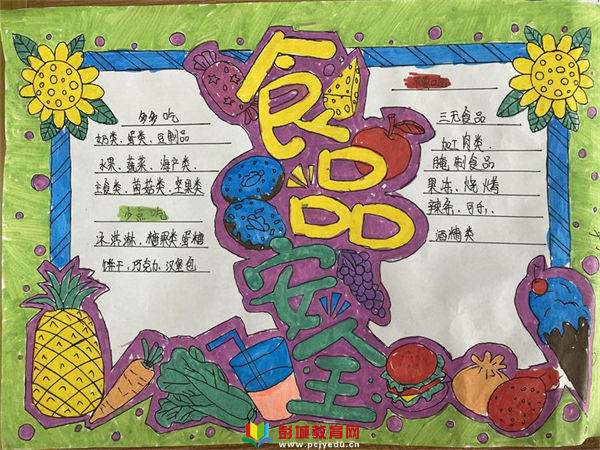 食品安全
多多吃
奶类、蛋类、豆制品
水果、蔬菜、海产类
主食类、菌菇类、坚果类
少量吃
冰淇淋、糖果类、蛋糕
饼干、巧克力、汉堡包
三无食品
加工肉类
腌制食品
果冻、烧烤
辣条、可乐、
酒精类
彭城教育网
www.pcjyedu.cn